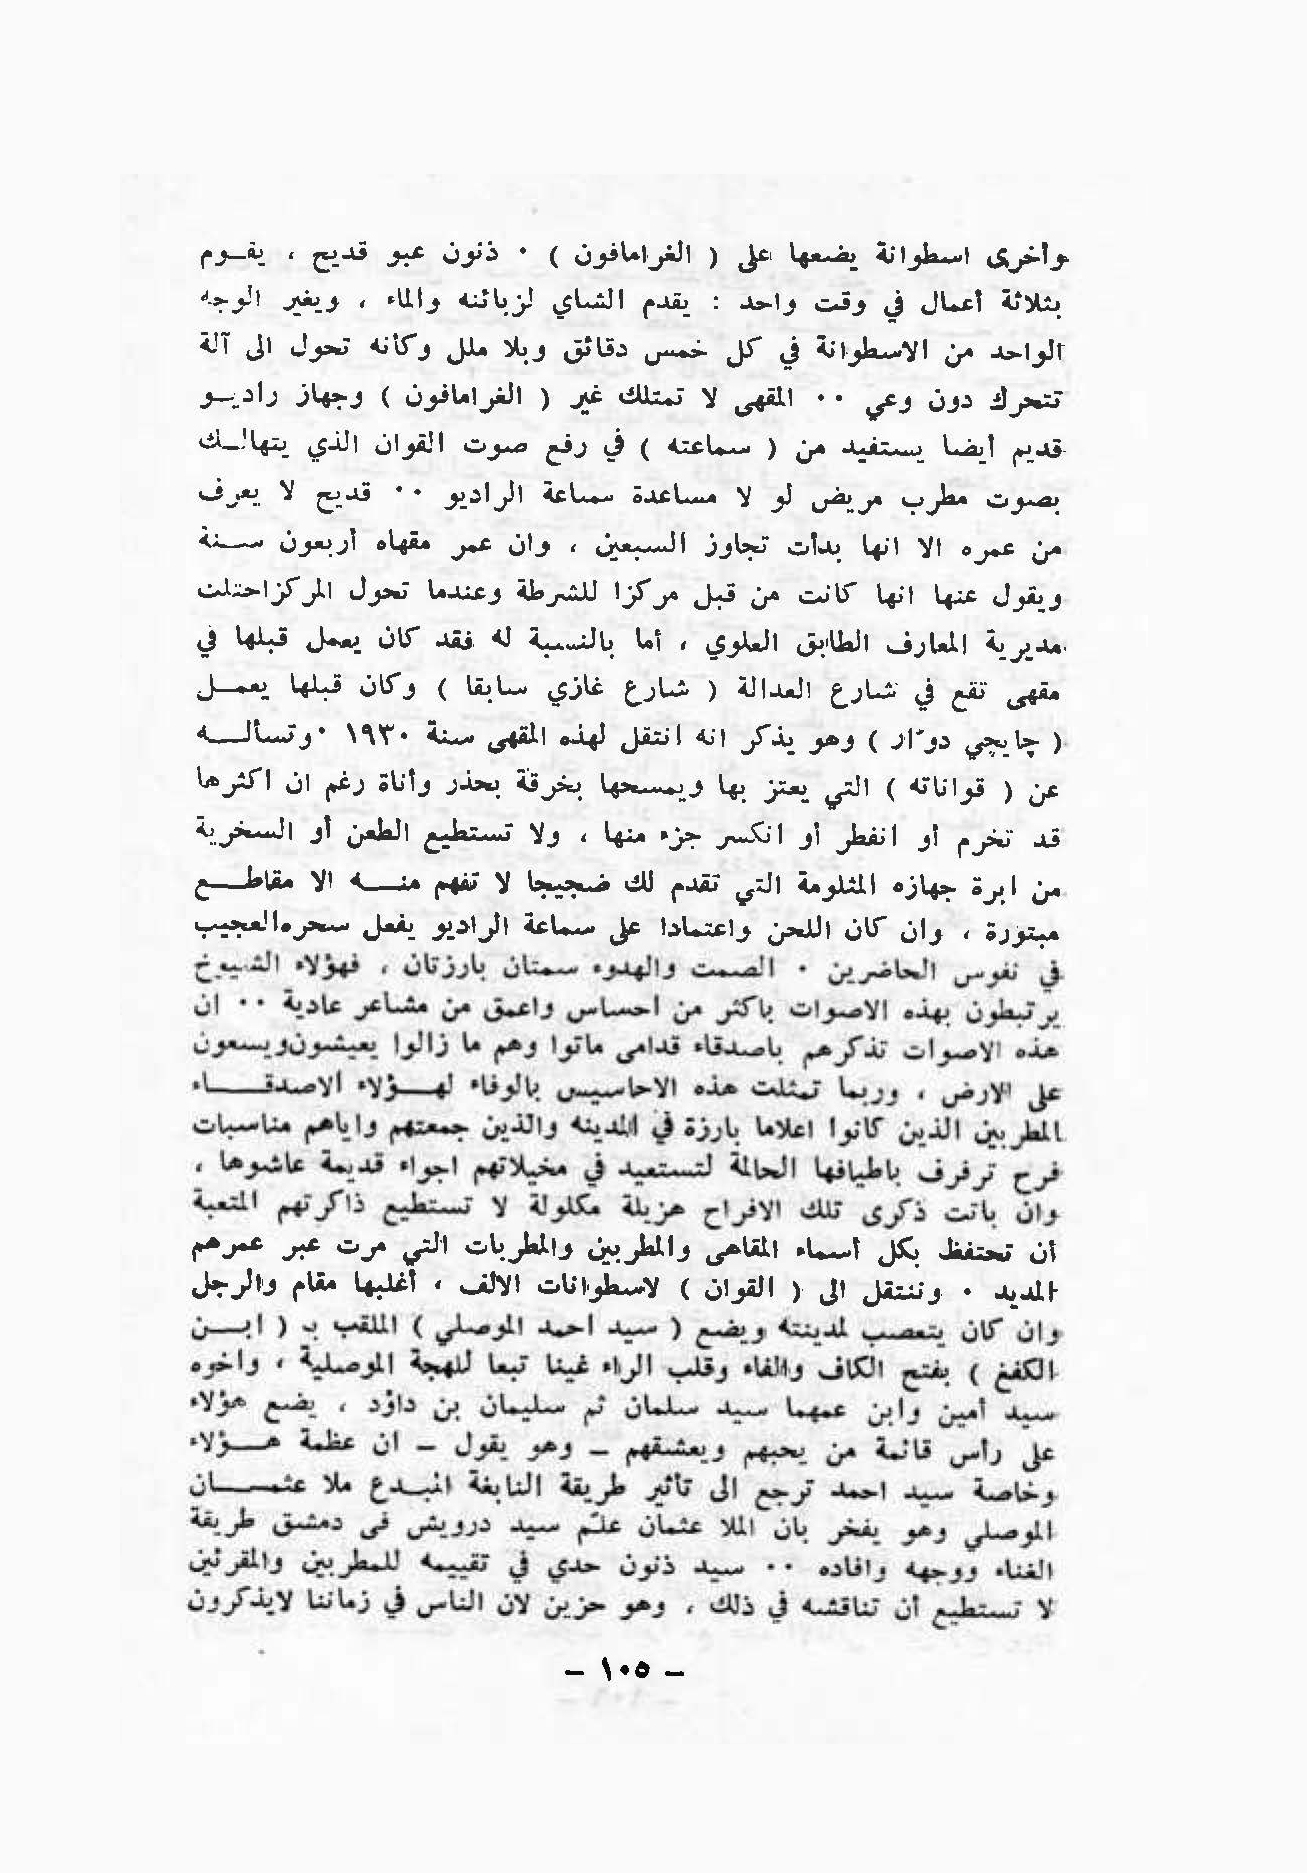 وأخرى اسطوانة يضعها على ( الغرامافون ) ٠ ذنون عبو قديح ، يقـوم
بثلاثة أعمال في وقت واحد : يقدم الشاي لزبائنه والماء ، ويغير الوجه
الواحد من الاسطوانة في كل خمس دقائق وبلا ملل وكأنه تحول الى آلة
تتحرك دون وعي ٠٠ المقهى لا تمتلك غير ( الغرامافون ) وجهاز راديـو
قديم أيضا يستفيد من ( سماعته ) في رفع صوت القوان الذي يتهالـك
بصوت مطرب مريض لو لا مساعدة سماعة الراديو ٠٠ قديح لا يعرف
من عمره الا انها بدأت تجاوز السبعين ، وان عمر مقهاه أربعون سـنة
ويقول عنها انها كانت من قبل مركزا للشرطة وعندما تحول المركزاحتلت
مديرية المعارف الطابق العلوي ، أما بالنسبة له فقد كان يعمل قبلها في
مقهى تقع في شارع العدالة ( شارع غازي سابقا ) وكان قبلها يعمـل
( چايچي دوّار ) وهو يذكر انه انتقل لهذه المقهى سنة ١٩٣٠ ٠وتسألـه
عن ( قواناته ) التي يعتز بها ويمسحها بخرقة بحذر وأناة رغم ان اكثرها
قد تخرم أو انفطر أو انكسر جزء منها ، ولا تستطيع الطعن أو السخرية
من ابرة جهازه المثلومة التي تقدم لك ضجيجا لا تفهم منـه الا مقاطـع
مبتورة ، وان كان اللحن واعتمادا على سماعة الراديو يفعل سحره‌العجيب
في نفوس الحاضرين ٠ الصمت والهدوء سمتان بارزتان ، فهؤلاء الشيوخ
يرتبطون بهذه الاصوات باكثر من احساس واعمق من مشاعر عادية ٠٠ ان
هذه الاصوات تذكرهم باصدقاء قدامى ماتوا وهم ما زالوا يعيشون‌ويسعون
على الارض ، وربما تمثلت هذه الاحاسيس بالوفاء لهـؤلاء الاصدقـاء
المطربين الذين كانوا اعلاما بارزة في المدينه والذين جمعتهم واياهم مناسبات
فرح ترفرف باطيافها الحالمة لتستعيد في مخيلاتهم اجواء قديمة عاشوها ،
وان باتت ذكرى تلك الافراح هزيلة مكلولة لا تستطيع ذاكرتهم المتعبة
أن تحتفظ بكل أسماء المقاهى والمطربين والمطربات التي مرت عبر عمرهم
المديد ٠ وننتقل الى ( القوان ) لاسطوانات الالف ، أغلبها مقام والرجل
وان كان يتعصب لمدينته ويضع ( سيد احمد الموصلي ) الملقب بـ ( ابـن
الكفغ ) بفتح الكاف والفاء وقلب الراء غينا تبعا للهجة الموصلية ، واخوه
سيد أمين وابن عمهما سيد سلمان ثم سليمان بن داؤد ، يضع هؤلاء
على رأس قائمة من يحبهم ويعشقهم ــ وهو يقول ــ ان عظمة هـؤلاء
وخاصة سيد احمد ترجع الى تأثير طريقة النابغة المبـدع ملا عثمـان
الموصلي وهو يفخر بان الملا عثمان علّم سيد درويش فى دمشق طريقة
الغناء ووجهه وافاده ٠٠ سيد ذنون حدي في تقييمه للمطربين والمقرئين
لا تستطيع أن تناقشه في ذلك ، وهو حزين لان الناس في زماننا لايذكرون
– ١٠٥ –